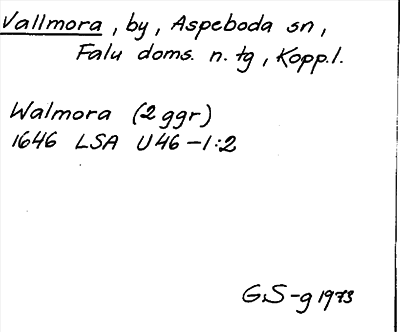 Vallmora, by, Aspeboda sn,
Falu doms. n. tg, Kopp.l.
Walmora (2 ggr)
1646 LSA U46-1:2
G.S-g 1973